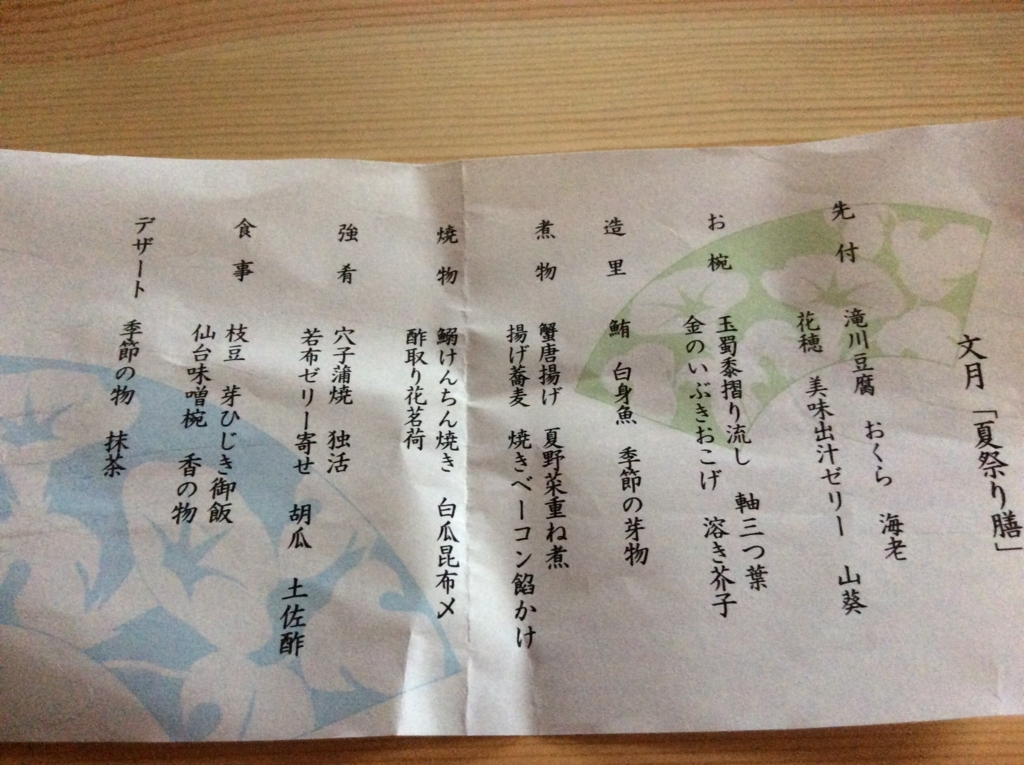 文月 「夏祭り膳」
先付
滝川豆腐 おくら 海老
花穂 美味出汁ゼリー 山葵
お椀
玉蜀黍摺り流し 軸三つ葉
金のいぶきおこげ 溶き芥子
造里
鮪 白身魚 季節の芽物
煮物
蟹唐揚げ 夏野菜重ね煮
揚げ蕎麦 焼きベーコン餡かけ
焼物
鰯けんちん焼き 白瓜昆布〆
酢取り花茗荷
強肴
穴子蒲焼 独活
若布ゼリー寄せ 胡瓜 土佐酢
食事
枝豆 芽ひじき御飯
仙台味噌椀 香の物
デザート
季節の物 抹茶